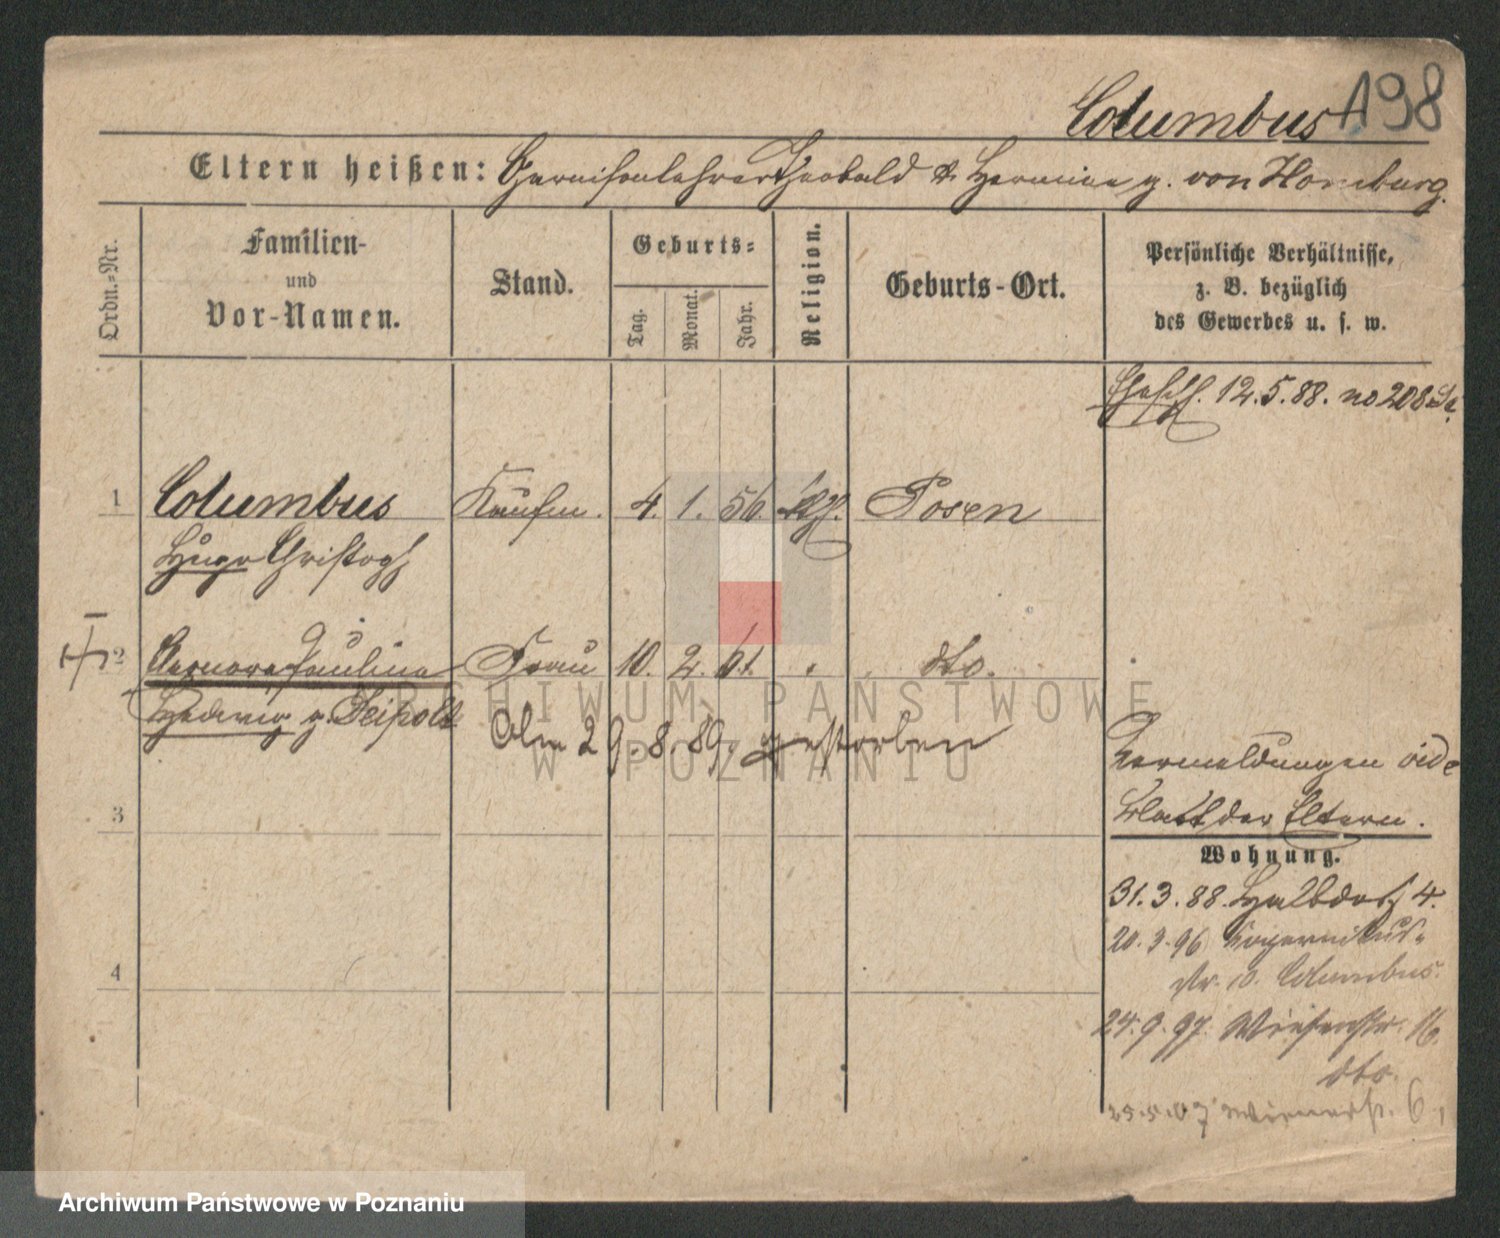 Columbus 198
Eltern heißen: Garnisonlehrer Theobald & Hermine g. von Homburg.
Ordn.-Nr.
Familien-
und
Vor-Namen.
Stand.
Geburts-
Tag. Monat. Jahr.
Religion.
Geburts-Ort.
Persönliche Verhältnisse,
z. B. bezüglich
des Gewerbes u. s. w.
12.5.88. no 208
1 Columbus Kaufm. 4. 1. 56. Posen
Hugo Christoph
2 Paulina Frau 10. 2. 61. dto.
Hedwig g. Seipold
Am 29.8.89. gestorben
Vermeldungen vide
Blatt der Eltern.
3
Wohnung.
31.3.88. Halbdorf 4.
20.3.96 Kopernikus-
str. 10. Columbus.
4
24.9.97. Wiesenstr. 16.
dto.
25.5.07 6,
ARCHIWUM PAŃSTWOWE
W POZNANIU
Archiwum Państwowe w Poznaniu